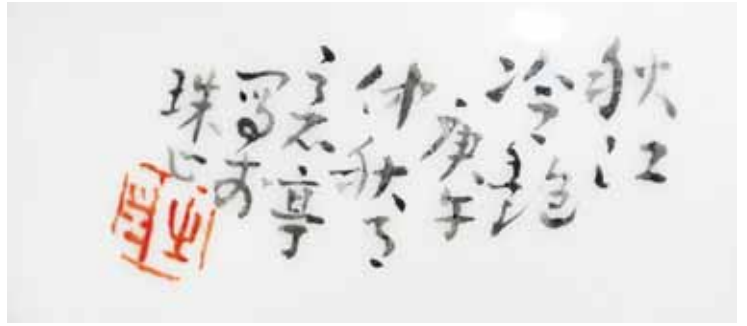 秋江
冷艳
庚午
仲秋月
亭
写于
珠山